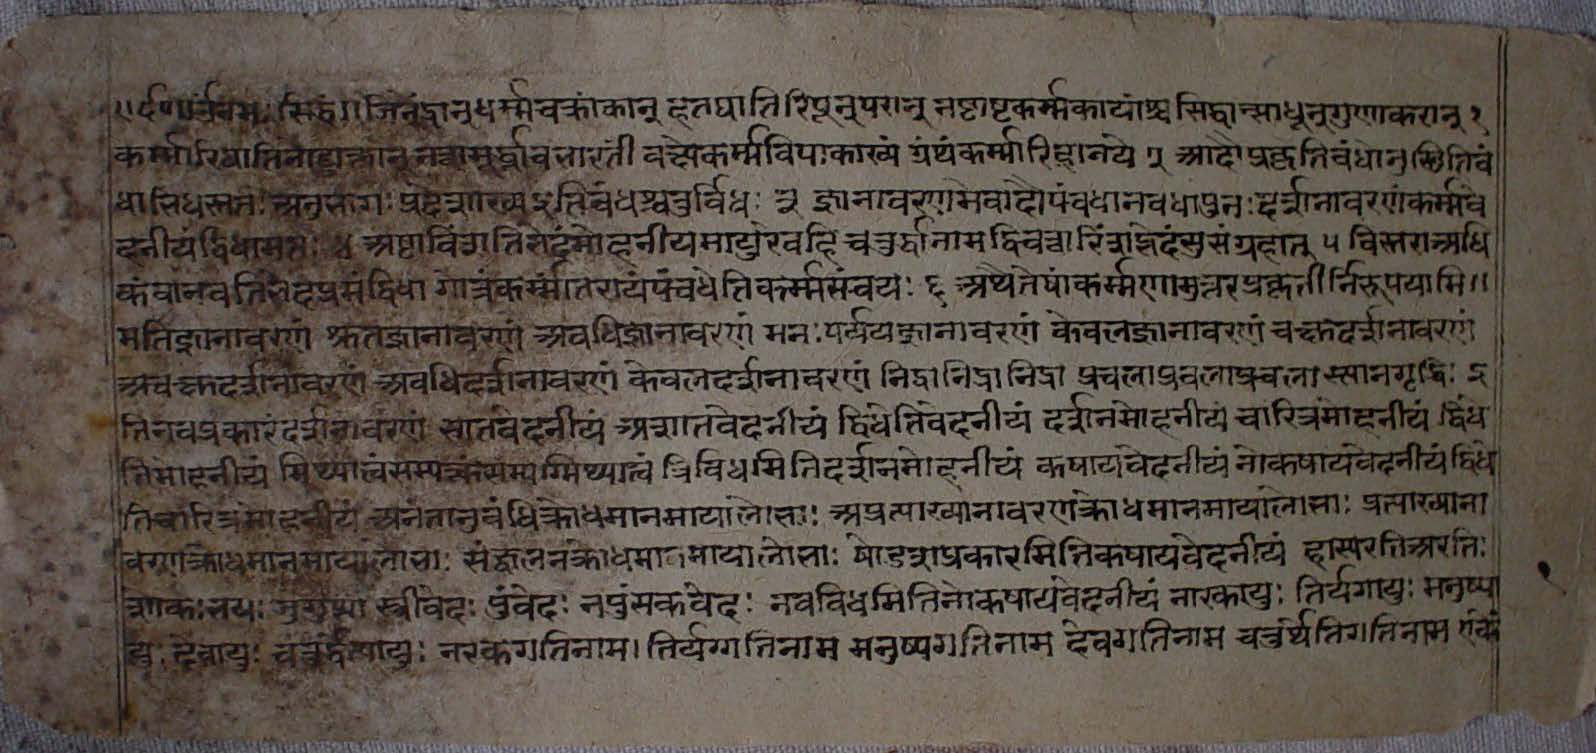 ॥र्द०॥ॐनमः सिद्धं॥ जिनेंद्रान् धर्म्मचक्रांकान् हतघातिरिपून् परान् नष्टाष्टकर्म्मकायांश्च सिद्धान्साधून् गुणाकरान् १
कर्म्मारिघातिनो नत्वा मूर्द्ध्ना च भारतीं वक्ष्ये कर्म्मविपाकाख्यं ग्रंथं कर्म्मारिहानये २ आदौ प्रकृतिबंधोनु स्थितिबं
धाभिधस्ततः अनुभागः प्रदेशाख्य इतिबंधश्चतुर्विधः ३ ज्ञानावरणमेवादौ पंचधा नवधा पुनः दर्शनावरणं कर्म्मवे
दनीयं द्विधामतं ४ अष्टाविंशतिभेदं मोहनीयमायुरेवहि चतुर्द्धा नाम द्विचत्वारिंशद्भेदं सुसंग्रहात् ५ विस्तराअधि
कं वा नवतिभेदप्रमं द्विधा गोत्रं कर्म्मांतरायं पंचधेति कर्म्मसंचयः ६ अथैतेषां कर्म्मणामुत्तरप्रकृतीर्निरूपयामि॥
मतिज्ञानावरणं श्रुतज्ञानावरणं अवधिज्ञानावरणं मनःपर्ययज्ञानावरणं केवलज्ञानावरणं चक्षुदर्शनावरणं
अचक्षुदर्शनावरणं अवधिदर्शनावरणं केवलदर्शनावरणं निद्रानिद्रा निद्रा प्रचलाप्रचला प्रचला स्त्यानगृद्धिः इ
तिनवप्रकारं दर्शनावरणं सातवेदनीयं अशातवेदनीयं द्विधेतिवेदनीयं दर्शनमोहनीयं चारित्रमोहनीयं द्विधे
तिमोहनीयं मिथ्यात्वं सम्यक्त्वं सम्यग्मिथ्यात्वं त्रिविधमितिदर्शनमोहनीयं कषायवेदनीयं नोकषायवेदनीयं द्विधे
तिचारित्रमोहनीयं अनंतानुबंधिक्रोधमानमायालोभाः अप्रत्याख्यानावरणक्रोधमानमायालोभाः प्रत्याख्याना
वरणक्रोधमानमायालोभाः संज्वलनक्रोधमानमायालोभाः षोडशप्रकारमितिकषायवेदनीयं हास्यरतिअरतिः
शोकः भयः जुगुप्सा स्त्रीवेदः पुंवेदः नपुंसकवेदः नवविधमितिनोकषायवेदनीयं नारकायुः तिर्यगायुः मनुष्या
युः देवायुः नरकगतिनाम। तिर्यग्गतिनाम मनुष्यगतिनाम देवगतिनाम चतुर्थेतिगतिनाम एकें